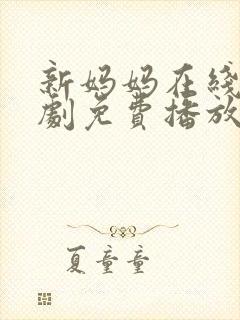 新妈妈在线
劇免費播放
夏童童